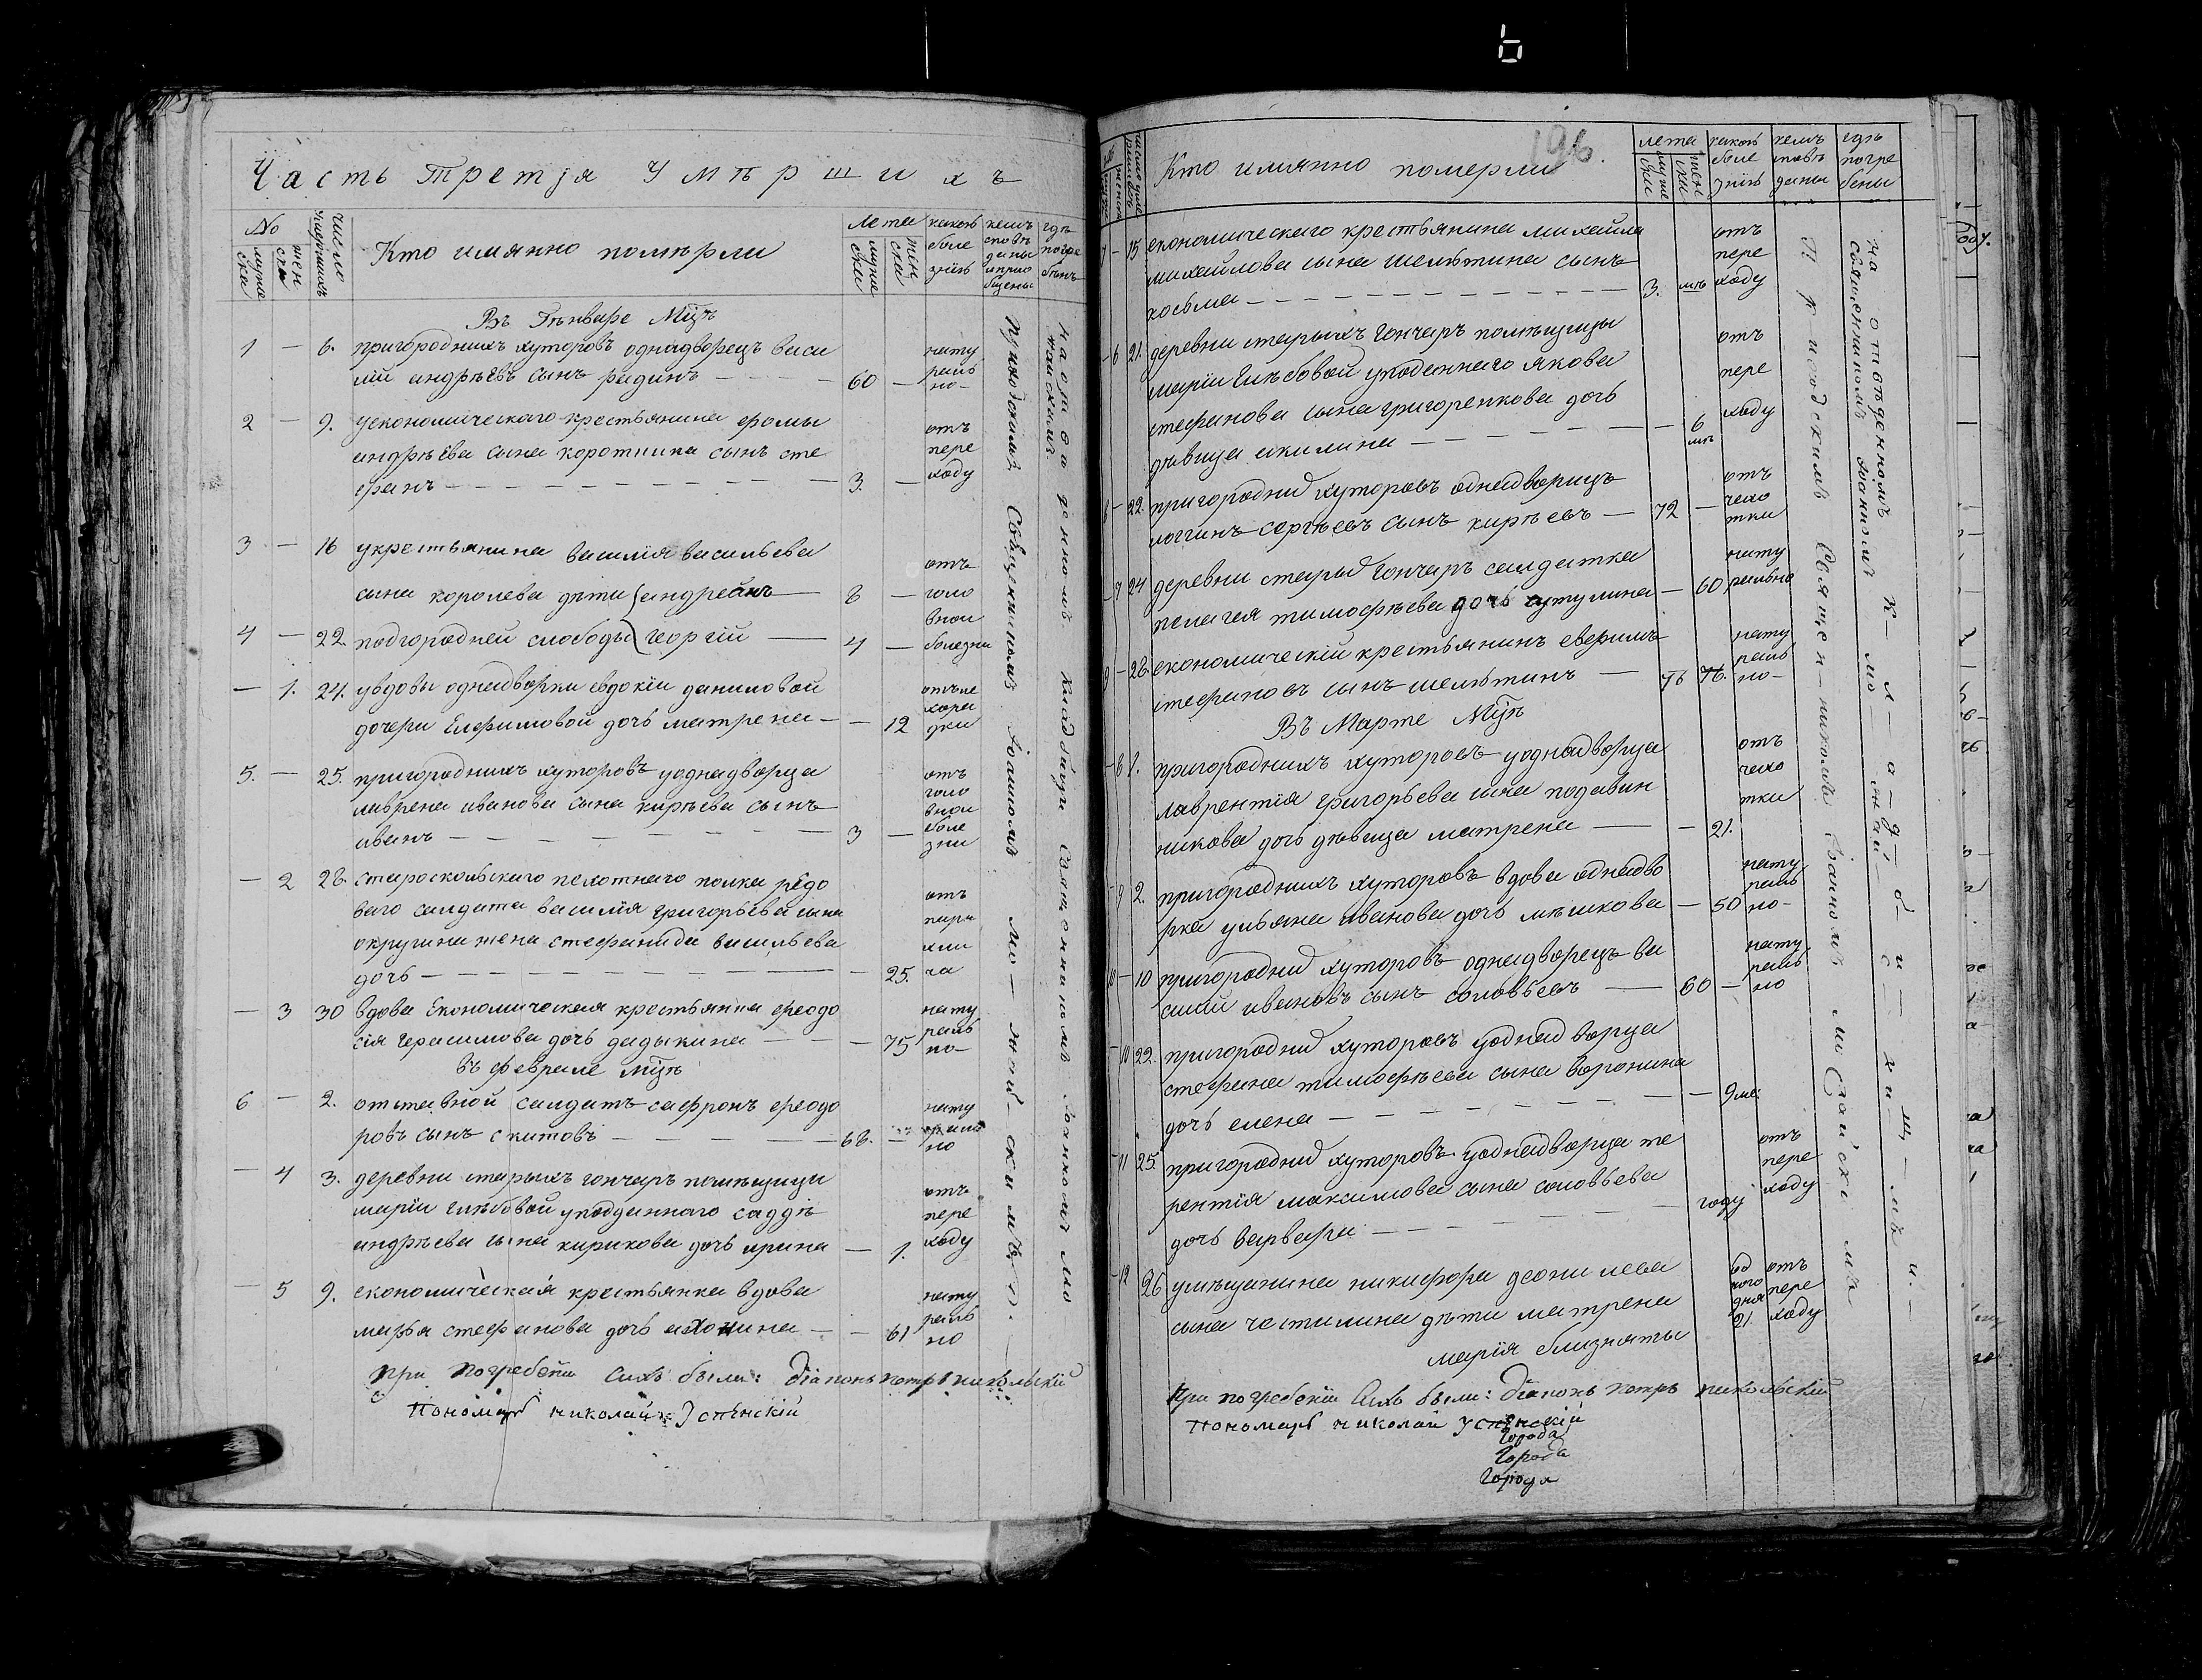 Часть Третія Умѣршихъ
No
муже
ска
жен
ска
число
умершихъ
Кто имянно помѣрли
лета
муже
ска
жен
ска
какою
боле
знію
кемъ
исповѣ
даны
и прио
бщены
гдѣ
погре
бѣнъ
Въ Генваре Мцѣ
1 — 6. пригородныхъ хуторовъ однадворецъ васи
лій андрѣевъ сынъ рядинъ — 60 — нату
раль
но
2 — 9. уекономическаго крестьянина фомы
андрѣева сына короткина сынъ сте
фанъ — 3. — отъ
пере
ходу
3 — 16 укрестьянина василія васильева
сына королева дѣти андрей — 8 — отъ
голо
вной
4 — 22. подгородней слободы георгій — 4 — болезни
— 1. 24. увдовы однадворки евдокіи даниловой
дочери Елфимовой дочь матрена — 12 отъ
5. — 25. пригородныхъ хуторовъ уоднадворца
лаврена иванова сына кирѣева сынъ
иванъ — 3 — отъ
голо
вной
боле
зни
— 2 28. староскольскаго пехотнаго полка рѣдо
ваго салдата василія григорьева сына
округина жена стефанида васильева
дочь — 25. отъ
— 3 30 вдова Економическая крестьянка феодо
сія герасимова дочь дадыкина — 75 нату
раль
но
въ феврале мцѣ
6 — 2. отставной салдатъ сафронъ феодо
ровъ сынъ скитовъ — 68. — нату
раль
но
— 4 3. деревни старыхъ гончаръ помѣщицы
маріи глѣбовой уподданнаго
андрѣева сына кирикова дочь ирина — 1. отъ
пере
ходу
— 5 9. економическая крестьянка вдова
марья стефанова дочь — 61 нату
раль
но
приходскимъ Священникомъ Іоанномъ
на отведенномъ кладбищи
при погребеніи сихъ были: діаконъ петръ никольскій
Пономарь николай Успѣнскій
196.
Кто имянно померли
лета
муже
ски
жен
ски
какою
боле
знію
кемъ
исповѣ
даны
гдѣ
погре
бены
7 — 15 економическаго крестьянина михайла
михайлова сына шелѣтина сынъ
косьма — 3. лѣ отъ
пере
ходу
— 6 21. деревни старыхъ гончаръ помѣщицы
маріи глѣбовой уподаннаго якова
стефанова сына григоренкова дочь
дѣвица акилина — 6 отъ
пере
ходу
8 — 22. пригородныхъ хуторовъ однадворецъ
логгинъ сергѣевъ сынъ кирѣевъ — 72 — отъ
чехо
тки
— 7 24 деревни старыхъ гончаръ салдатка
пелагея тимофѣева дочь — 60 нату
рально
9 — 28. економическій крестьянинъ
стефановъ сынъ шелѣтинъ — 76. нату
раль
но
Въ Марте Мцѣ
8 1. пригородныхъ хуторовъ уоднадворца
лаврентія григорьева сына
дочь дѣвица матрена — 21. отъ
чехо
тки
— 9 2. пригородныхъ хуторовъ вдова однадво
рка ульяна иванова дочь мѣшкова — 50 нату
раль
но
10 — 10 пригородныхъ хуторовъ однадворецъ ва
силій ивановъ сынъ соловьевъ — 60 — нату
раль
но
— 10 22. пригородныхъ хуторовъ уоднадворца
стефана тимофѣева сына воронина
дочь елена — 9 ме.
— 11 25. пригородныхъ хуторовъ уоднадворца те
рентія максимова сына соловьева
дочь варвара — году отъ
пере
ходу
— 12 26 умѣщанина никифора
сына частилина дѣти матрена
марія близняты
од
ного
дня
21. отъ
пере
ходу
Приходскимъ Священникомъ Іоанномъ
на отведенномъ
Священникомъ Іоанномъ
при погребеніи сихъ были: діаконъ петръ никольскій
Пономарь николай Успѣнскій
города
города
города